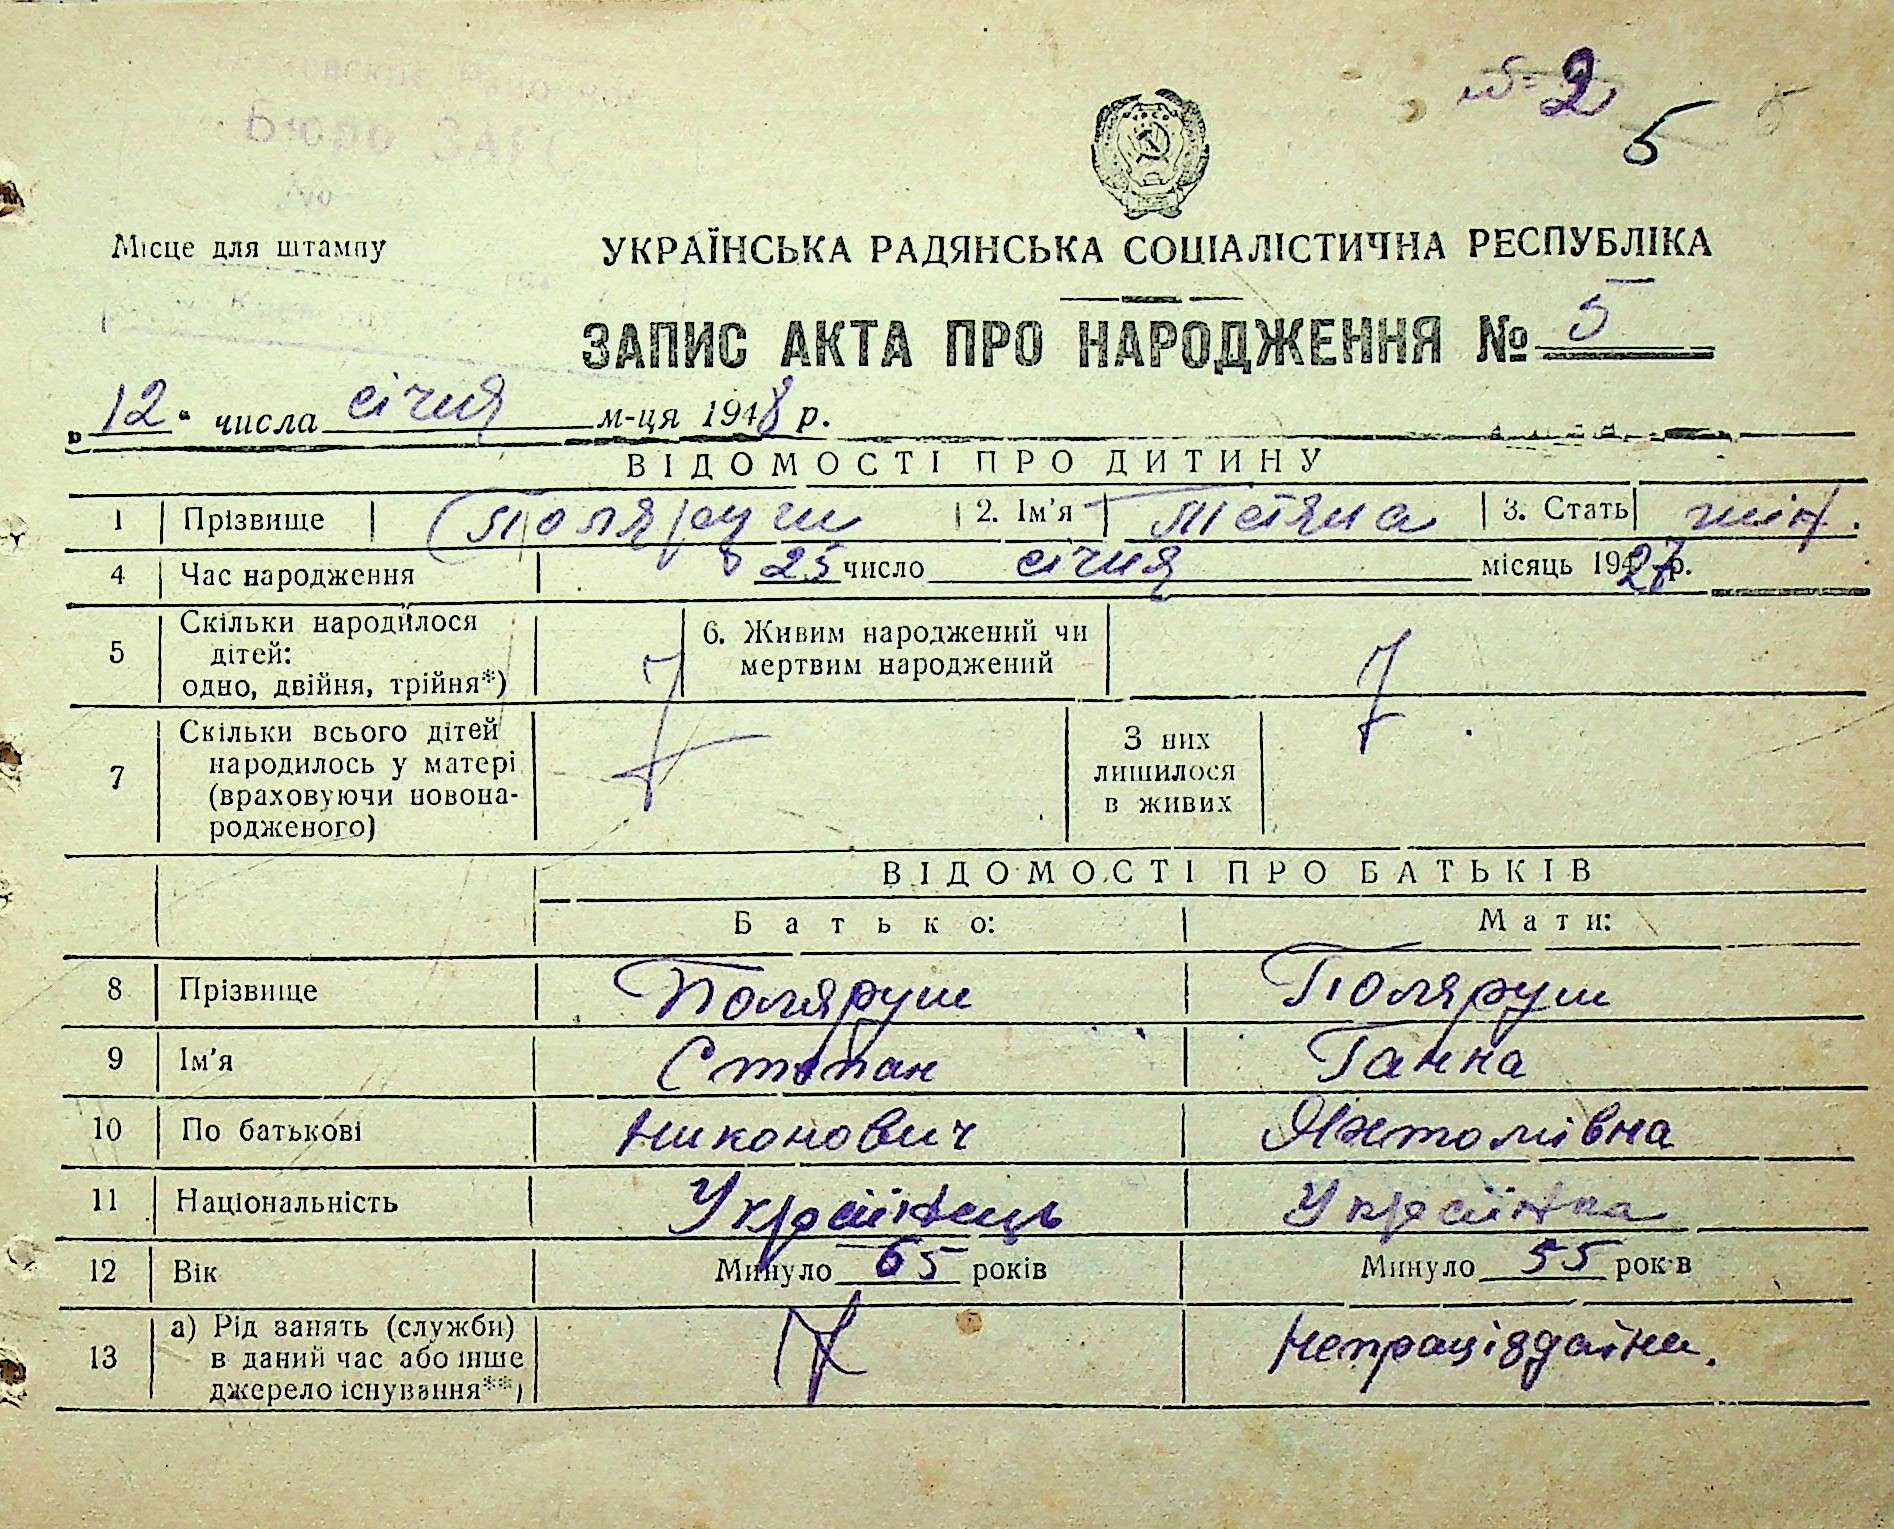 № 2
5
Бюро ЗАГС
Місце для штампу
УКРАЇНСЬКА РАДЯНСЬКА СОЦІАЛІСТИЧНА РЕСПУБЛІКА
ЗАПИС АКТА ПРО НАРОДЖЕННЯ № 5
„12“ числа січня м-ця 1948 р.
ВІДОМОСТІ ПРО ДИТИНУ
1 Прізвище Поляруш 2. Ім'я Тетяна 3. Стать жін.
4 Час народження 25 число січня місяць 1927 р.
5 Скільки народилося
дітей:
одно, двійня, трійня*)
6. Живим народжений чи
мертвим народжений
7 Скільки всього дітей
народилось у матері
(враховуючи новона-
родженого)
З них
лишилося
в живих
ВІДОМОСТІ ПРО БАТЬКІВ
Батько: Мати:
8 Прізвище Поляруш Поляруш
9 Ім'я Степан Ганна
10 По батькові Никонович
11 Національність Українець Українка
12 Вік Минуло 65 років Минуло 55 років
13 а) Рід занять (служби)
в даний час або інше
джерело існування**)
Непрацівдатна.